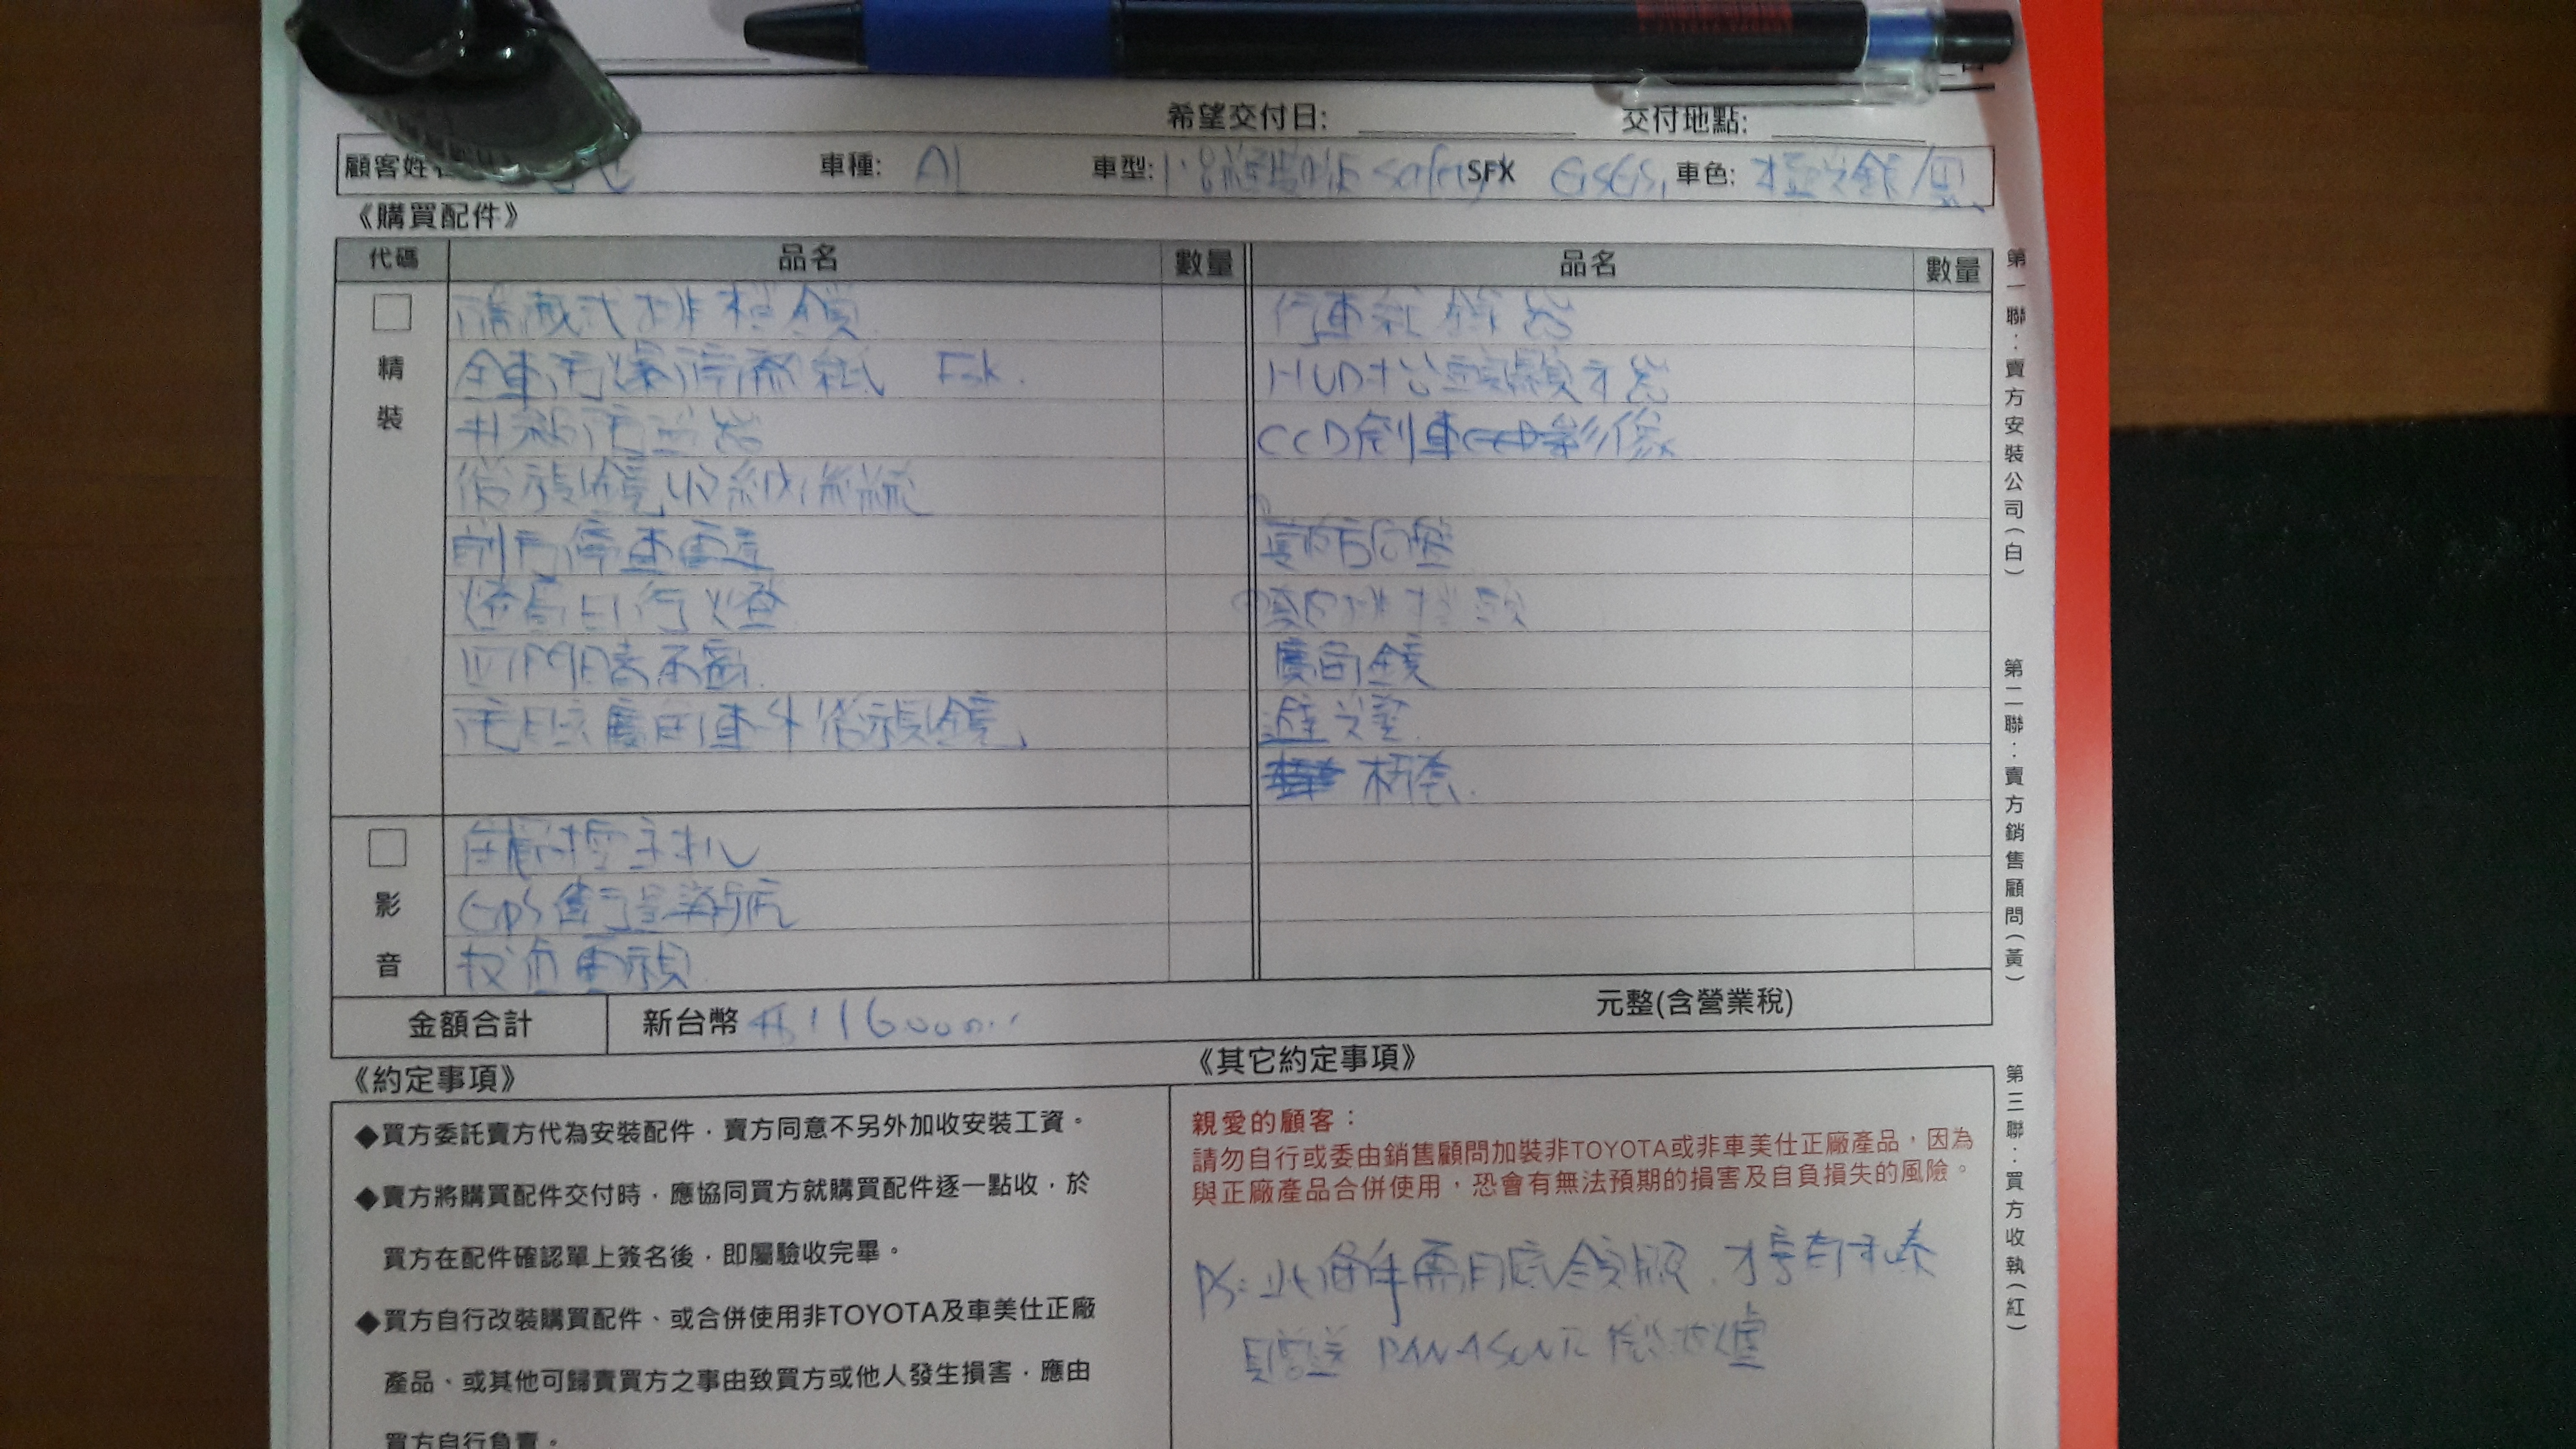 希望交付日: 交付地點:
顧客姓 車種: Al 車型: 1.8 safety SFX 車色: 極光銀/黑
《購買配件》
代碼 品名 數量 品名 數量
精裝
隱藏式排檔鎖
全車防爆隔熱紙 FSK
升級防盜器
後視鏡收納系統
前方停車雷達
燈眉日行燈
四門晴雨窗
防眩廣角車外後視鏡
行車紀錄器
HUD抬頭顯示器
CCD倒車影像
真皮方向盤
真皮排檔頭
廣角鏡
遮光墊
椅套
影音
觸控主機
GPS衛星導航
數位電視
金額合計 新台幣 116000 元整(含營業稅)
《約定事項》
◆買方委託賣方代為安裝配件,賣方同意不另外加收安裝工資。
◆賣方將購買配件交付時,應協同買方就購買配件逐一點收,於
買方在配件確認單上簽名後,即屬驗收完畢。
◆買方自行改裝購買配件、或合併使用非TOYOTA及車美仕正廠
產品、或其他可歸責買方之事由致買方或他人發生損害,應由
買方自行負責。
《其它約定事項》
親愛的顧客:
請勿自行或委由銷售顧問加裝非TOYOTA或非車美仕正廠產品,因為
與正廠產品合併使用,恐會有無法預期的損害及自負損失的風險。
PS: 此 件需月底領照,才享有
贈送 PANASONIC 微波爐
第一聯:賣方安裝公司(白)
第二聯:賣方銷售顧問(黃)
第三聯:買方收執(紅)